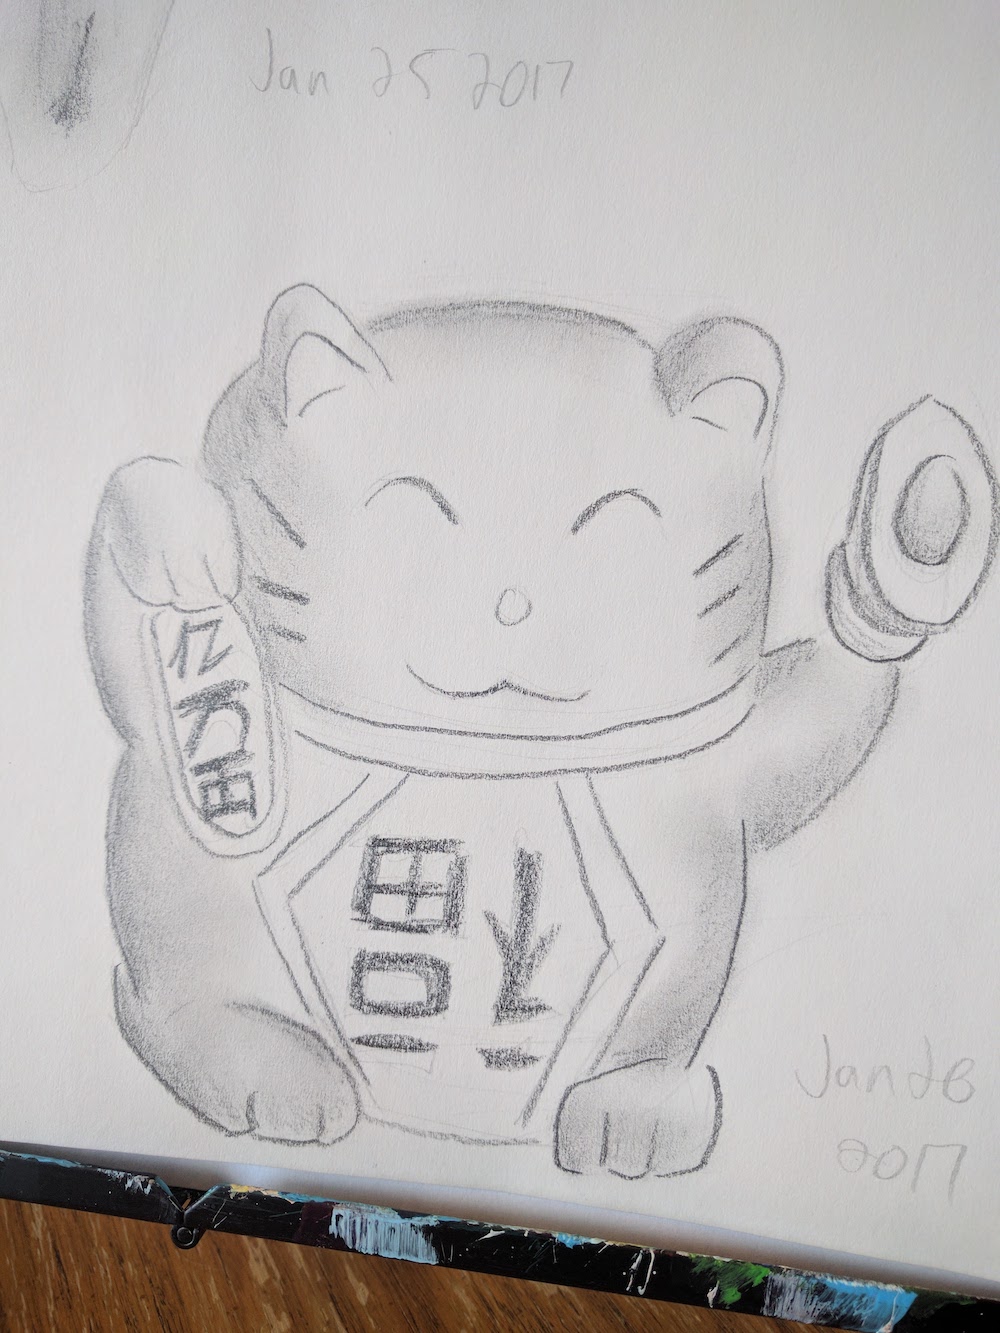 Jan 25 2017
亿
万
福
Jan
2017